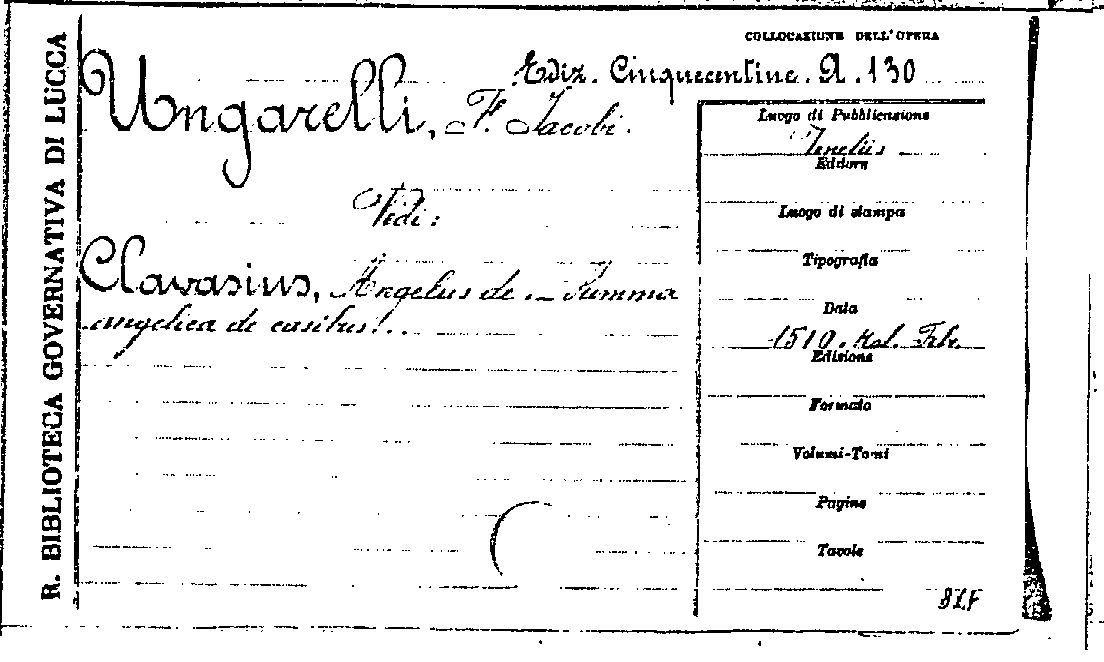 R. BIBLIOTECA GOVERNATIVA DI LUCCA
COLLOCAZIONE DELL'OPERA
Ediz. Cinquecentine. A. 130
Ungarelli, F. Jacobi.
Vedi:
Clavasius, Angelus de - Summa
angelica de casibus!..
Luogo di Pubblicazione
Venetiis
Editore
Luogo di stampa
Tipografia
Data
1510. Kal. Febr.
Edizione
Formato
Volumi-Tomi
Pagine
Tavole